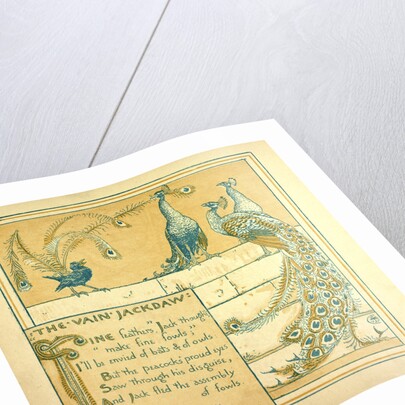 ·THE·VAIN·JACKDAW·
FINE feathers" Jack thought
"make fine fowls"
I'll be envied of bats & of owls
But the peacocks' proud eyes
Saw through his disguise,
And Jack fled the assembly
of fowls.